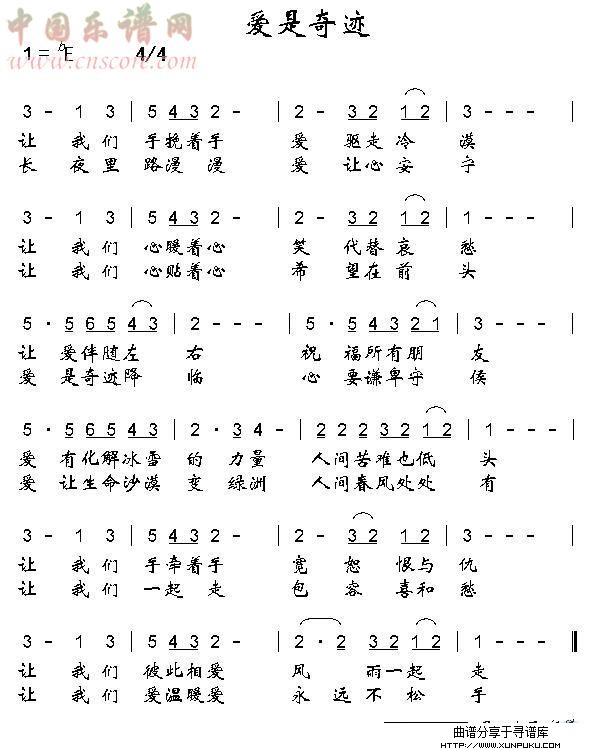 爱是奇迹
中国乐谱网
www.cnscore.com
1 = bE 4/4
3 - 1 3 | 5 4 3 2 - | 2 - 3 2 1 2 | 3 - - - |
让 我们 手挽着手 爱 驱走冷 漠
长 夜里 路漫 漫 爱 让心安 宁
3 - 1 3 | 5 4 3 2 - | 2 - 3 2 1 2 | 1 - - - |
让 我们 心暖着心 笑 代替哀 愁
让 我们 心贴着心 希 望在前 头
5 · 5 6 5 4 3 | 2 - - - | 5 · 5 4 3 2 1 | 3 - - - |
让 爱伴随左 右 祝 福所有朋 友
爱 是奇迹降 临 心 要谦卑守 候
5 · 5 6 5 4 3 | 2 · 3 4 - | 2 2 2 3 2 1 2 | 1 - - - |
爱 有化解冰雪 的 力量 人间苦难也低 头
爱 让生命沙漠 变 绿洲 人间春风处处 有
3 - 1 3 | 5 4 3 2 - | 2 - 3 2 1 2 | 3 - - - |
让 我们 手牵着手 宽 恕 恨与 仇
让 我们 一起 走 包 容 喜和 愁
3 - 1 3 | 5 4 3 2 - | 2 · 2 3 2 1 2 | 1 - - - ‖
让 我们 彼此相爱 风 雨一起 走
让 我们 爱温暖爱 永 远不松 手
曲谱分享于寻谱库
WWW.XUNPUKU.COM